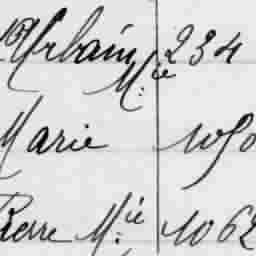 Urbain M.ie 234
Marie 1050
Pierre M.ie 1062